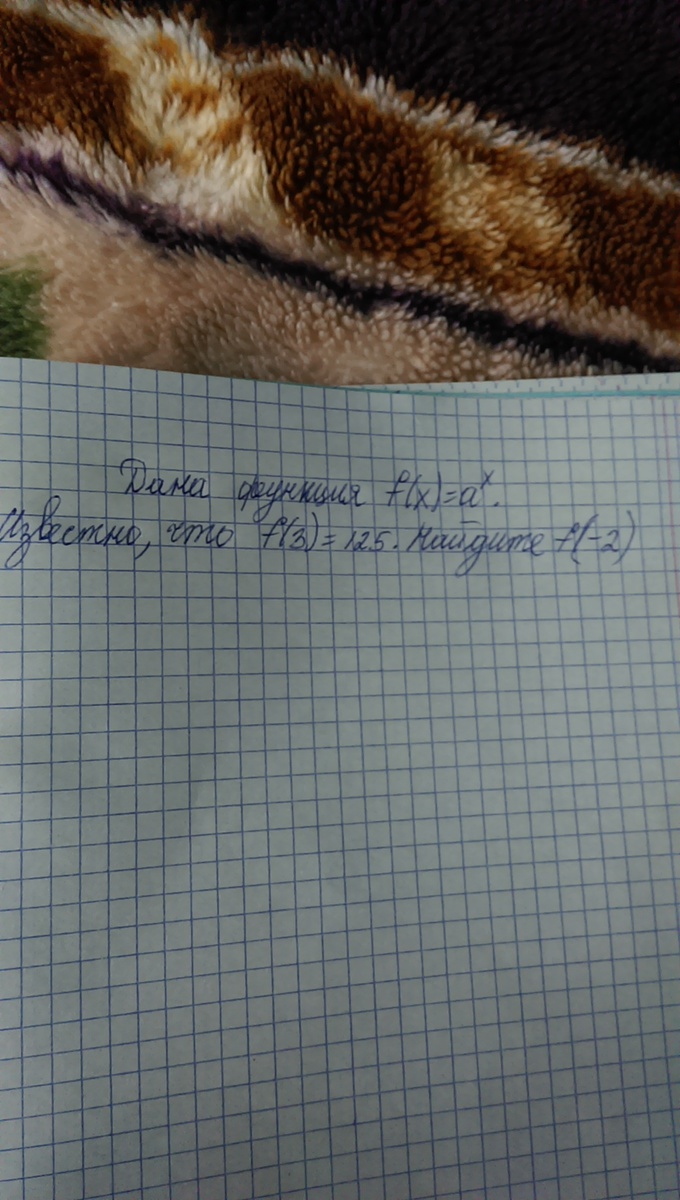 Дана функция f(x)=aˣ.
Известно, что f(3)=125. Найдите f(-2)